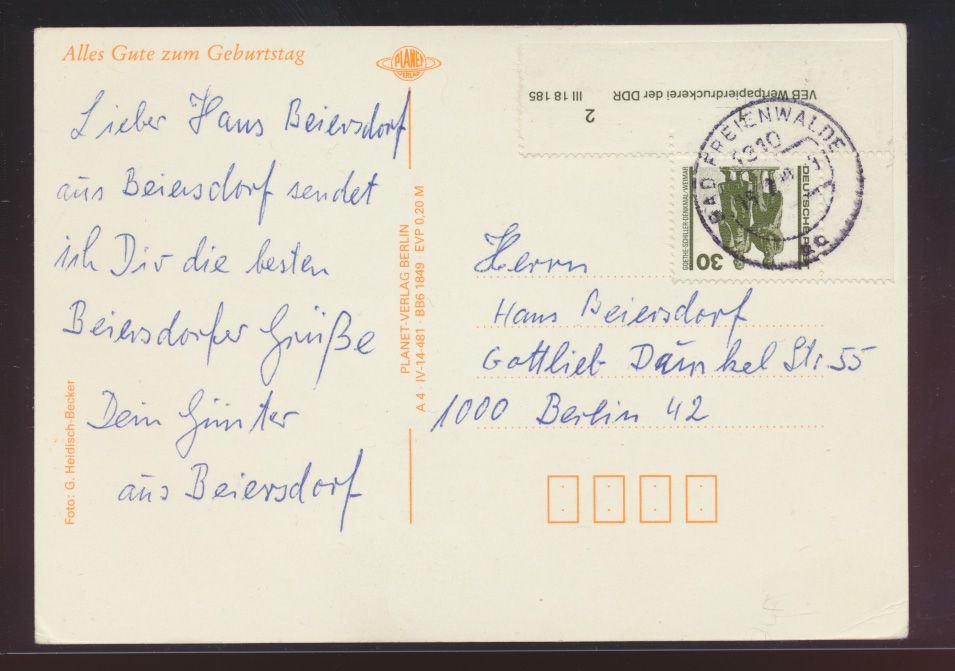 Alles Gute zum Geburtstag
PLANET
VERLAG
Lieber Hans Beiersdorf
aus Beiersdorf sendet
ich Dir die besten
Beiersdorfer Grüße
Dein Günter
aus Beiersdorf
Foto: G. Heidisch-Becker
PLANET-VERLAG BERLIN
A 4 · IV-14-481 · BB6 1849 · EVP 0,20 M
VEB Wertpapierdruckerei der DDR
III 18 185
2
BAD FREIENWALDE
1310
DEUTSCHE
GOETHE-SCHILLER-DENKMAL/WEIMAR
30
Herrn
Hans Beiersdorf
Gottlieb Dunkel Str. 55
1000 Berlin 42